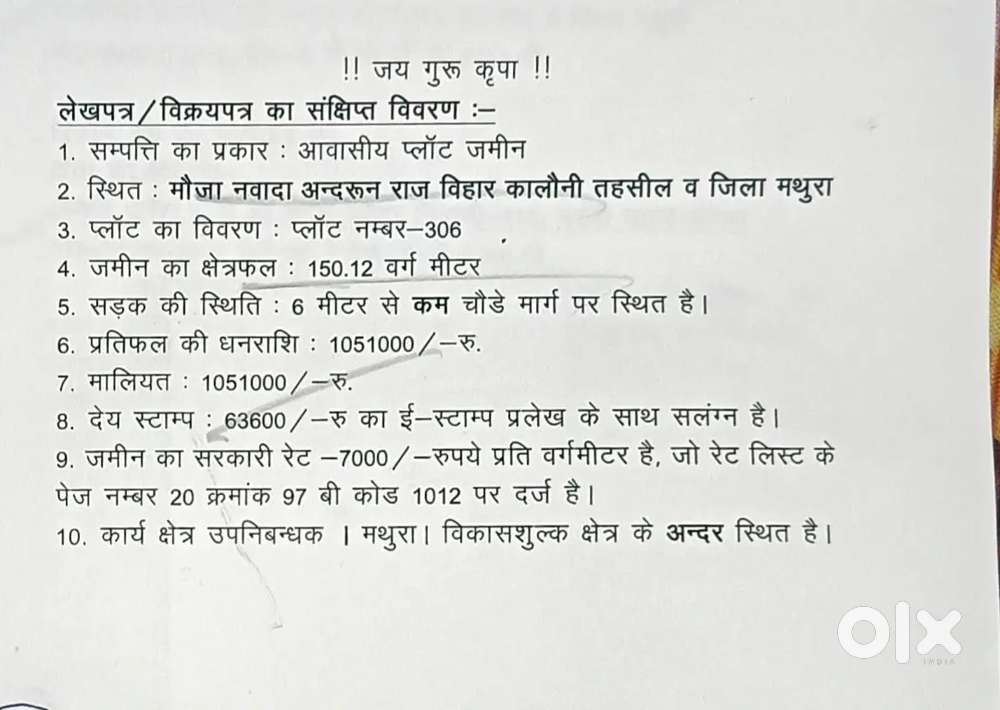 !! जय गुरू कृपा !!
लेखपत्र/विक्रयपत्र का संक्षिप्त विवरण :–
1. सम्पत्ति का प्रकार : आवासीय प्लॉट जमीन
2. स्थित : मौजा नवादा अन्दरून राज विहार कालौनी तहसील व जिला मथुरा
3. प्लॉट का विवरण : प्लॉट नम्बर–306
4. जमीन का क्षेत्रफल : 150.12 वर्ग मीटर
5. सड़क की स्थिति : 6 मीटर से कम चौडे मार्ग पर स्थित है।
6. प्रतिफल की धनराशि : 1051000/–रु.
7. मालियत : 1051000/–रु.
8. देय स्टाम्प : 63600/–रु का ई–स्टाम्प प्रलेख के साथ सलंग्न है।
9. जमीन का सरकारी रेट –7000/–रुपये प्रति वर्गमीटर है, जो रेट लिस्ट के
पेज नम्बर 20 क्रमांक 97 बी कोड 1012 पर दर्ज है।
10. कार्य क्षेत्र उपनिबन्धक । मथुरा। विकासशुल्क क्षेत्र के अन्दर स्थित है।
olx
INDIA